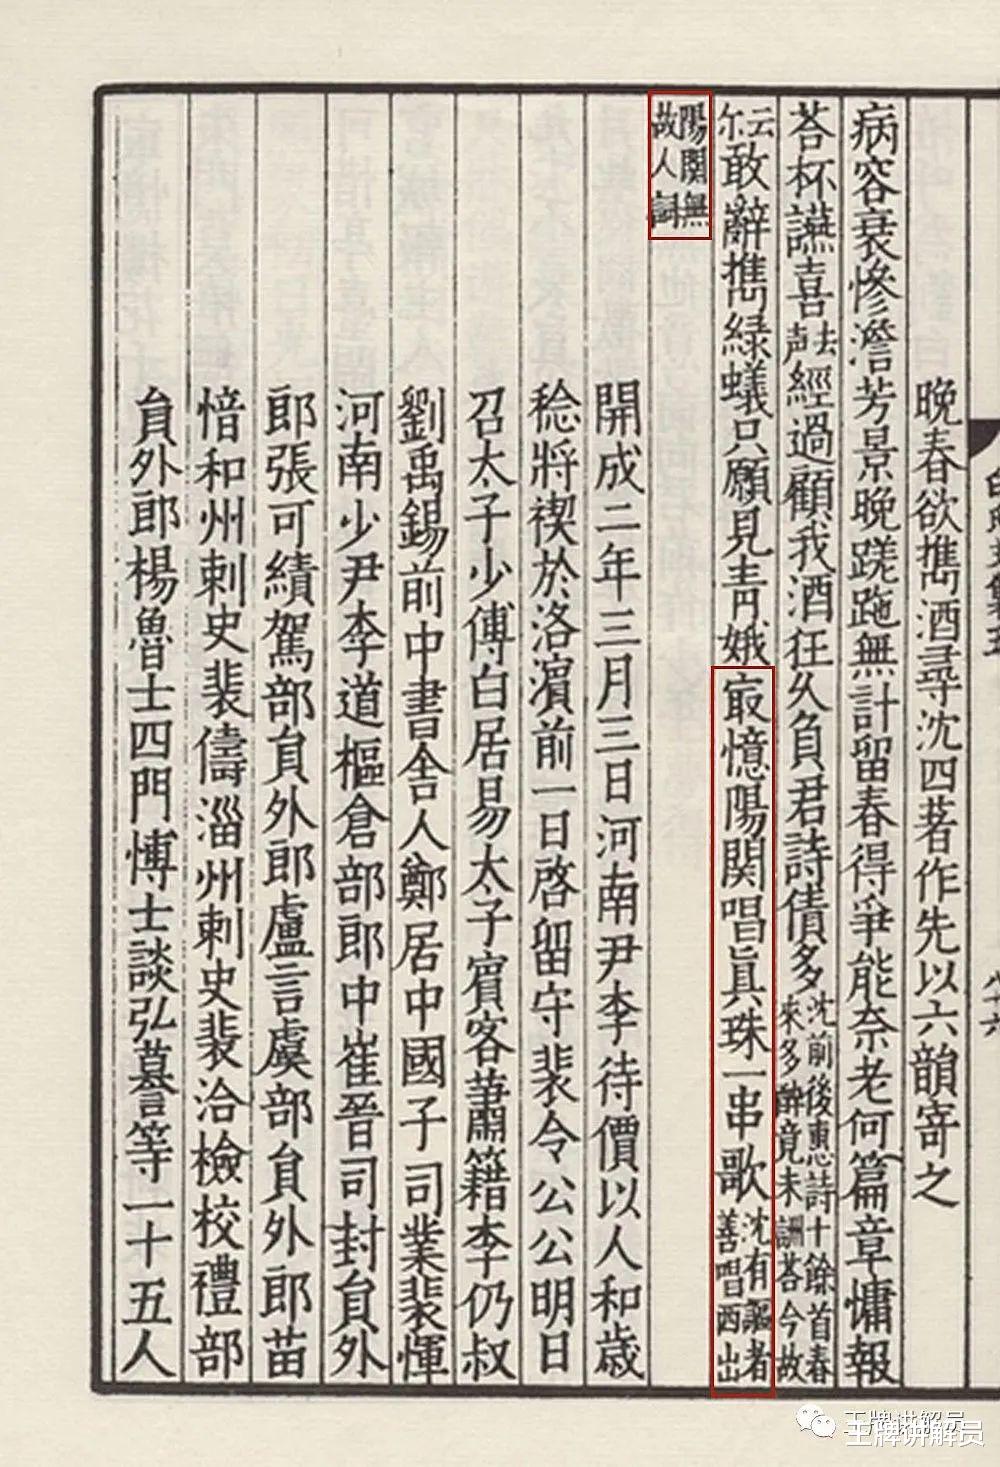 晚春欲攜酒尋沈四著作先以六韻寄之
病容衰慘澹芳景晚蹉跎無計留春得爭能奈老何篇章慵報
荅杯讌喜去声經過顧我酒狂久負君詩債多沈前後惠詩十餘首春來多醉竟未詶荅今故
云尔敢辭攜緑蟻只願見青娥㝡憶陽関唱眞珠一串歌沈有謳者善唱西出
陽関無故人詞
開成二年三月三日河南尹李待價以人和歲
稔將禊於洛濱前一日啓留守裴令公公明日
召太子少傅白居易太子賓客蕭籍李仍叔
劉禹錫前中書舍人鄭居中國子司業裴惲
河南少尹李道樞倉部郎中崔晉司封貟外
郎張可績駕部貟外郎盧言虞部貟外郎苗
愔和州刺史裴儔淄州刺史裴洽檢校禮部
貟外郎楊魯士四門愽士談弘謩等一十五人
王牌讲解员
王牌讲解员